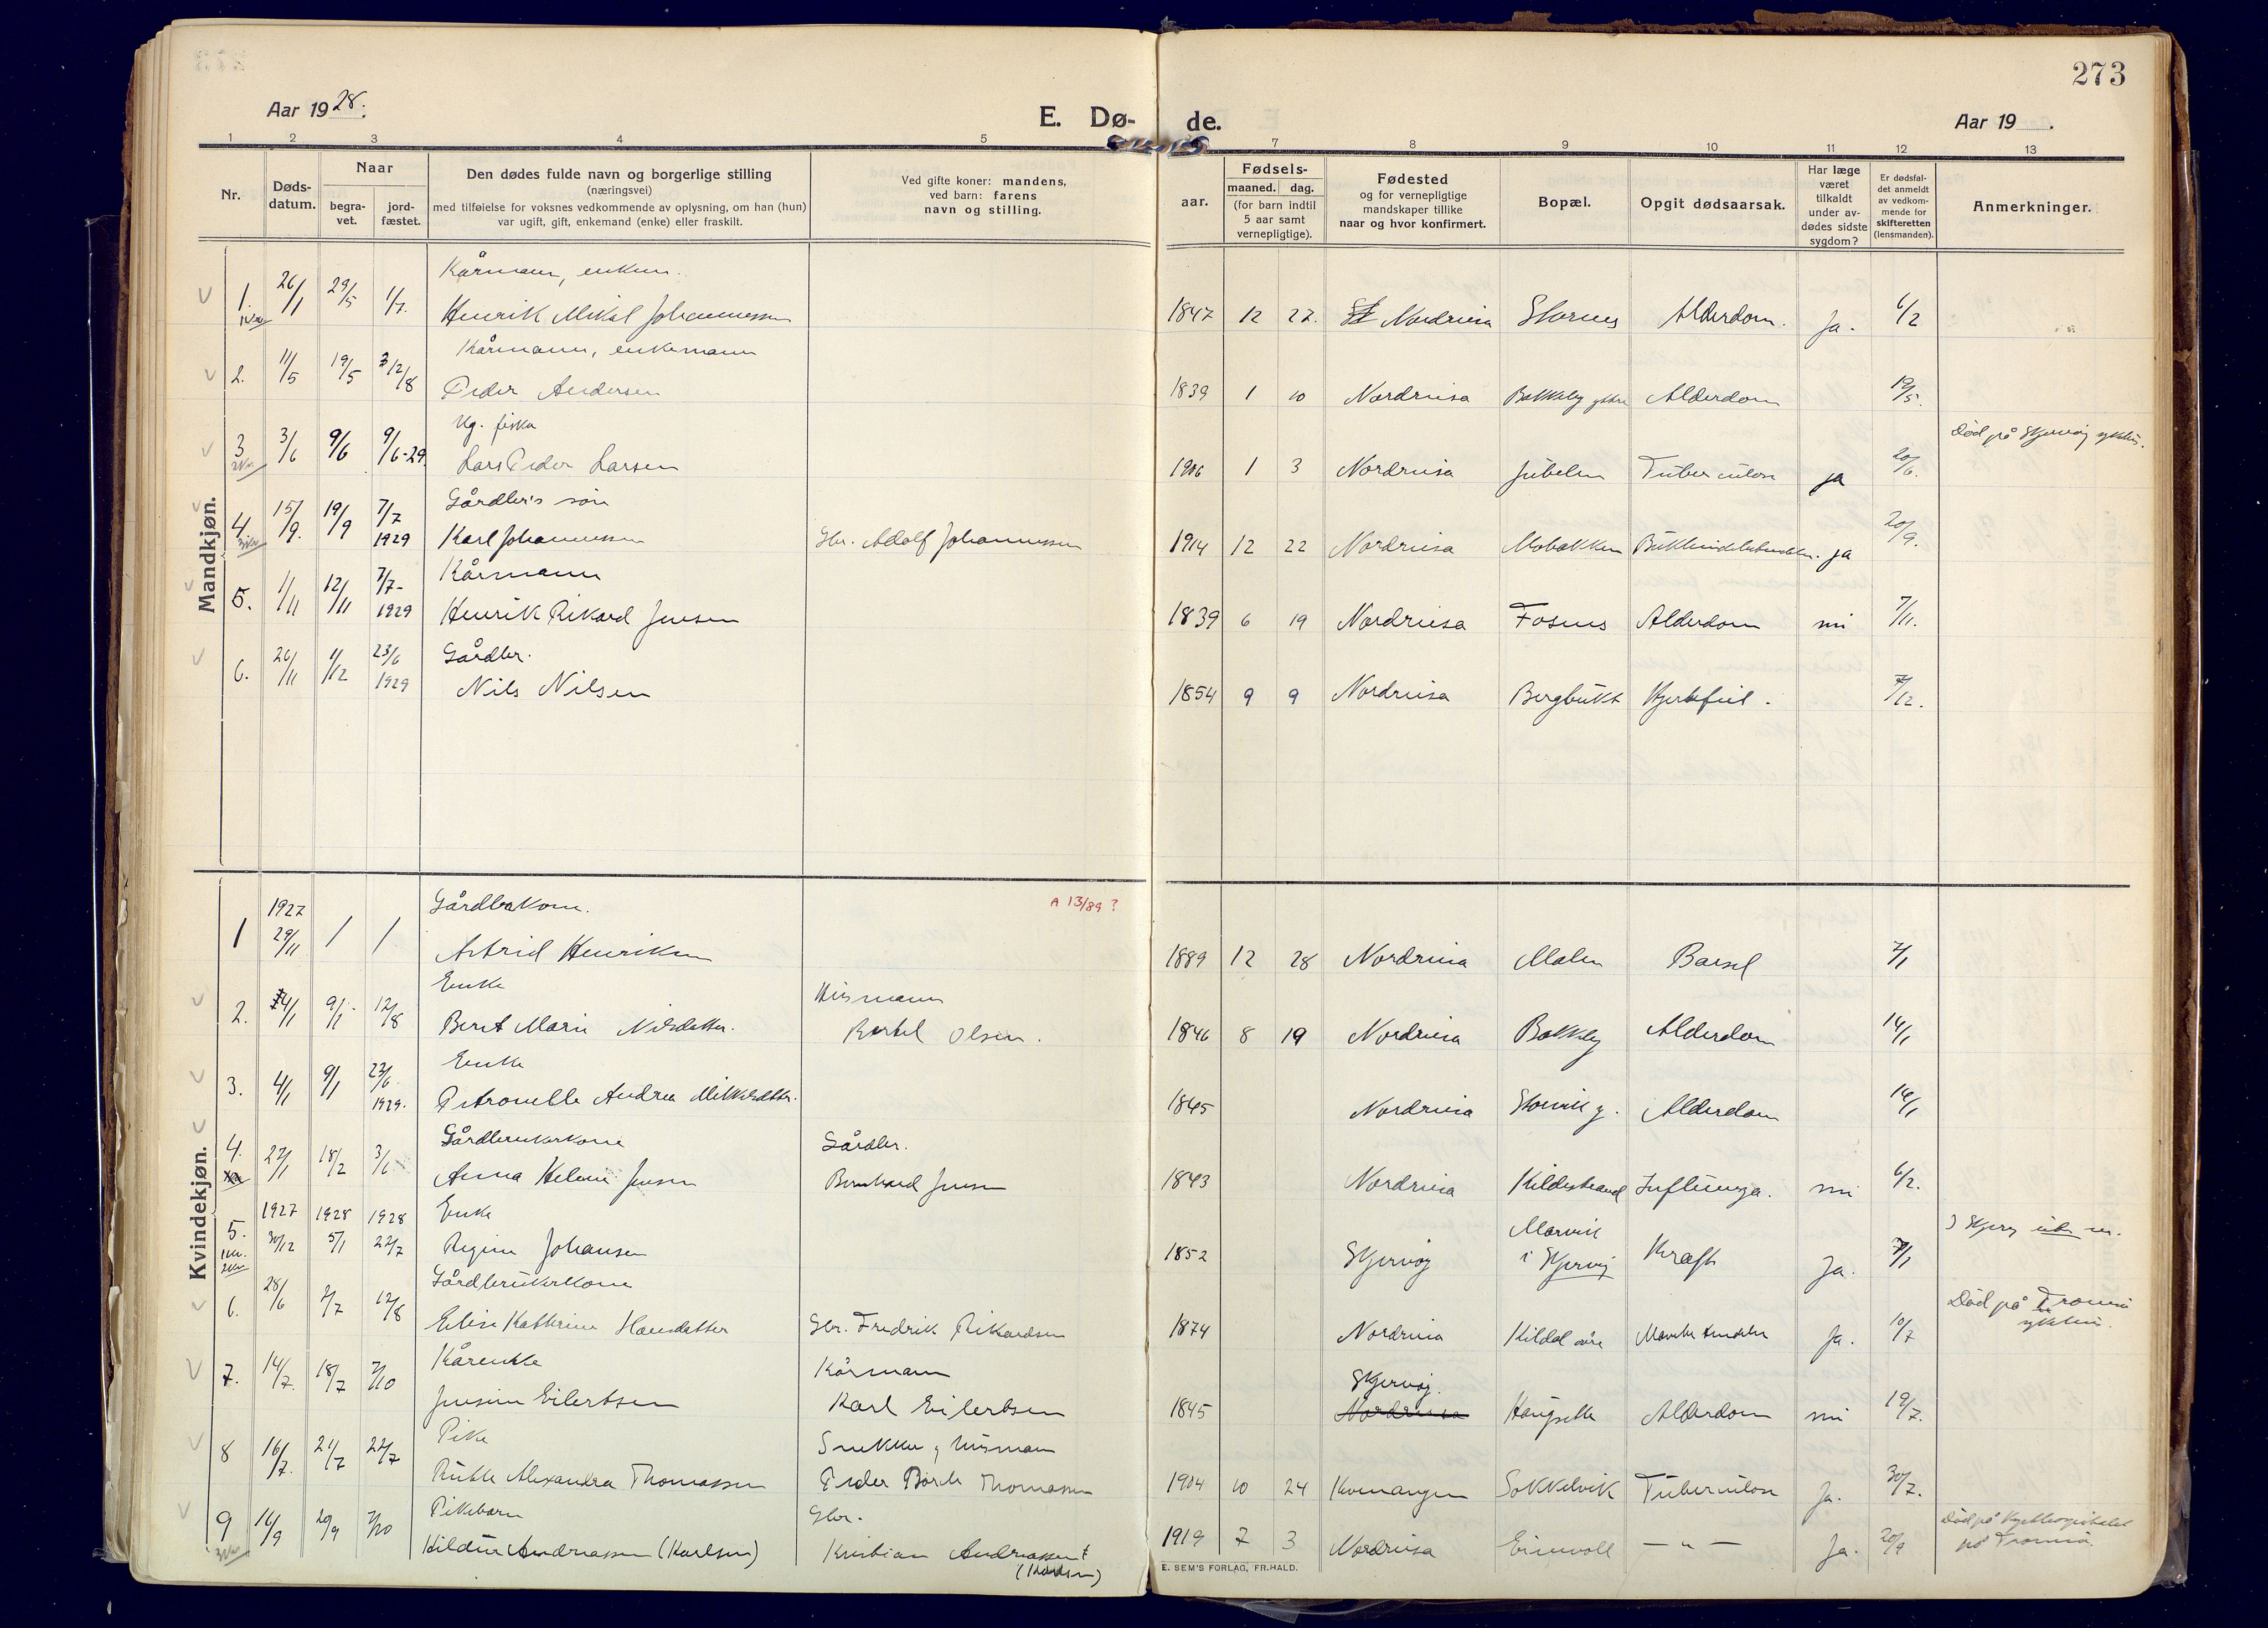 273
Aar 1928.
E. Dø-
de.
Aar 19 .
1 2 3 4 5 7 8 9 10 11 12 13
Nr.
Døds-
datum.
Naar
begra-
vet.
jord-
fæstet.
Den dødes fulde navn og borgerlige stilling
(næringsvei)
med tilføielse for voksnes vedkommende av oplysning, om han (hun)
var ugift, gift, enkemand (enke) eller fraskilt.
Ved gifte koner: mandens,
ved barn: farens
navn og stilling.
Fødsels-
aar.
maaned. dag.
(for barn indtil
5 aar samt
vernepligtige).
Fødested
og for vernepligtige
mandskaper tillike
naar og hvor konfirmert.
Bopæl.
Opgit dødsaarsak.
Har læge
været
tilkaldt
under av-
dødes sidste
sygdom?
Er dødsfal-
det anmeldt
av vedkom-
mende for
skifteretten
(lensmanden).
Anmerkninger.
Mandkjøn.
Kårmann, enkem.
1. 26/1 29/5 1/7. Henrik Mikal Johannessen 1847 12 27. Nordreisa Stornes Alderdom. Ja. 6/2
Kårmann, enkemann
2. 11/5 19/5 12/8 Peder Andersen 1839 1 10 Nordreisa Bakkeby ytre Alderdom 19/5.
Ug. fisker
Død på Skjervøy sykehus.
3 3/6 9/6 9/6-29 Lars Peder Larsen 1906 1 3 Nordreisa Jubelen Tuberculose ja 20/6.
Gårdbr's søn
4. 15/9. 19/9 7/7 1929 Karl Johannessen Gbr. Adolf Johannessen 1914 12 22 Nordreisa Mobakken ja 20/9.
Kårmann
5. 1/11 12/11 7/7- 1929 Henrik Rikard Jensen 1839 6 19 Nordreisa Fosnes Alderdom nei 7/11.
Gårdbr.
6. 26/11 1/12 23/6 1929 Nils Nilsen 1854 9 9 Nordreisa Bergbukt Hjertefeil. 7/12.
Kvindekjøn.
Gårdbr.kone.
A 13/89 ?
1 1927 29/11 / / Astrid Henriksen 1889 12 28 Nordreisa Malen Barsel 7/1
Enke
Husmann
2. 4/1 9/1 12/8 Beret Marie Nilsdatter. Bertel Olsen. 1846 8 19 Nordreisa Bakkeby Alderdom 14/1
Enke
3. 4/1 9/1 23/6 1929. Petronelle Andrea Mikkelsdatter. 1845 Nordreisa Storvik Alderdom 14/1
Gårdbrukerkone
Gårdbr.
4. 27/1 18/2 3/6 Anna Helene Jensen Bernhard Jensen 1843 Nordreisa Kildestrand Influensa. nei 6/2.
1927 1928 1928 Enke
Marvik
5. 30/12 5/1 22/7 Regine Johansen 1852 Skjervøy i Skjervøy Kræft Ja. 7/1
Gårdbrukerkone
Død på Tromsø
sykehus.
6. 28/6 2/7 12/8 Elise Kathrine Hansdatter Gbr. Fredrik Rikardsen 1874 Nordreisa Kildal Ja. 10/7
Kårenke
Kårmann
Skjervøy.
7. 14/7. 18/7 7/10 Jensine Eilertsen Karl Eilertsen 1845 Nordreisa Haugsette Alderdom nei 19/7.
Pike
Snekker, husmann
8 16/7. 21/7 22/7 Ruth Alexandra Thomassen Peder Thomassen 1904 10 24 Kvænangen Sokkelvik Tuberculose Ja. 30/7.
Pikebarn
Gbr.
9 16/9 20/9 7/10 Hildur Andreassen (Karlsen) Kristian Andreassen 1919 7 3 Nordreisa Einevoll — " — Ja. 20/9
(Karlsen)
på Tromsø.
E. SEM'S FORLAG, FR.HALD.